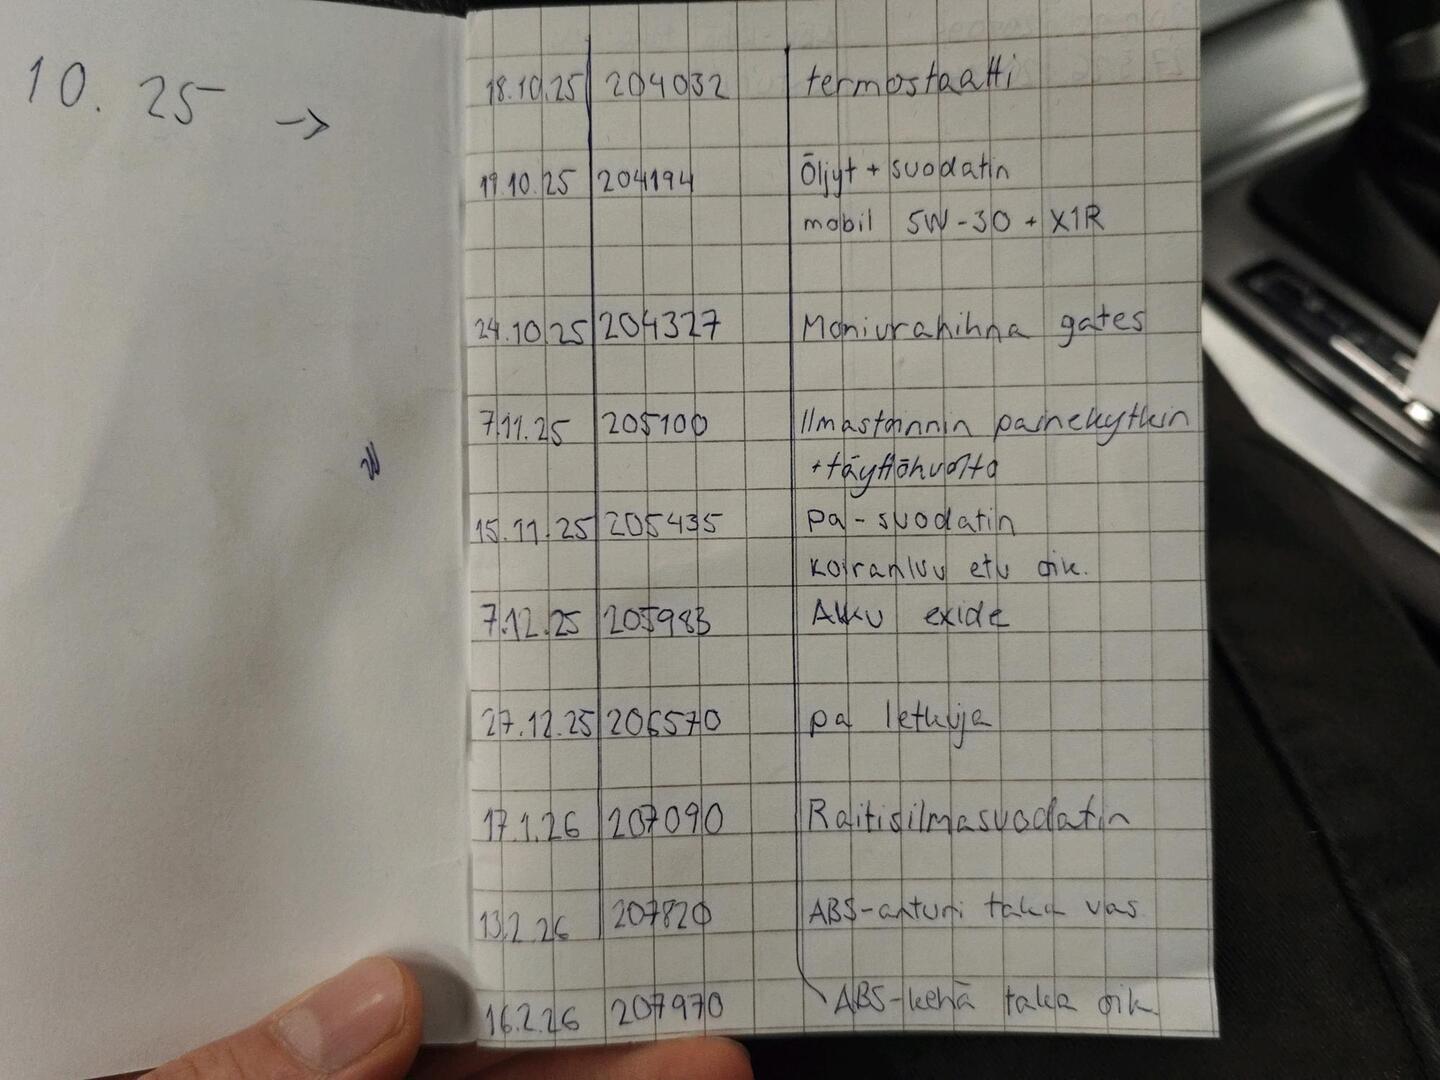 10. 25 →
18.10.25 204032 termostaatti
19.10.25 204194 Öljyt + suodatin
mobil 5W-30 + X1R
24.10.25 204327 Moniurahihna gates
7.11.25 205100 Ilmastoinnin painekytkin
+ täyttöhuolto
15.11.25 205435 pa-suodatin
koiranluu etu oik.
7.12.25 205983 Akku exide
27.12.25 206570 pa letkuja
17.1.26 207090 Raitisilmasuodatin
13.2.26 207820 ABS-anturi taka vas.
16.2.26 207970 ABS-kehä taka oik.